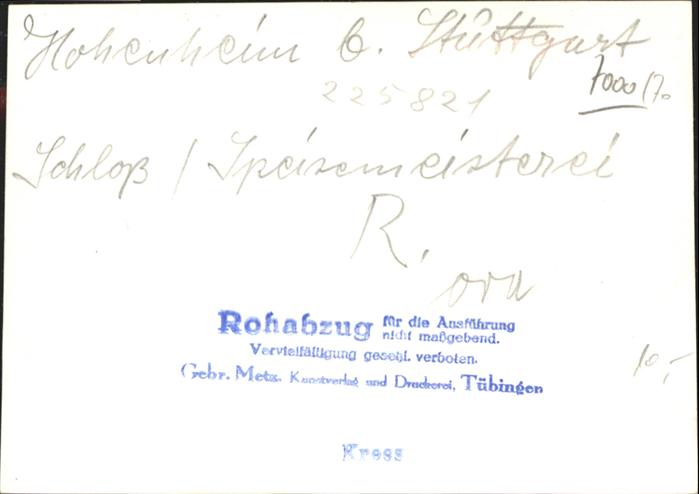 Hohenheim b. Stuttgart
7000/70
225821
Schloß / Speisemeisterei
R.
ord
Rohabzug für die Ausführung
nicht maßgebend.
Vervielfältigung gesetzl. verboten.
Gebr. Metz, Kunstverlag und Druckerei, Tübingen
10,-
Kress